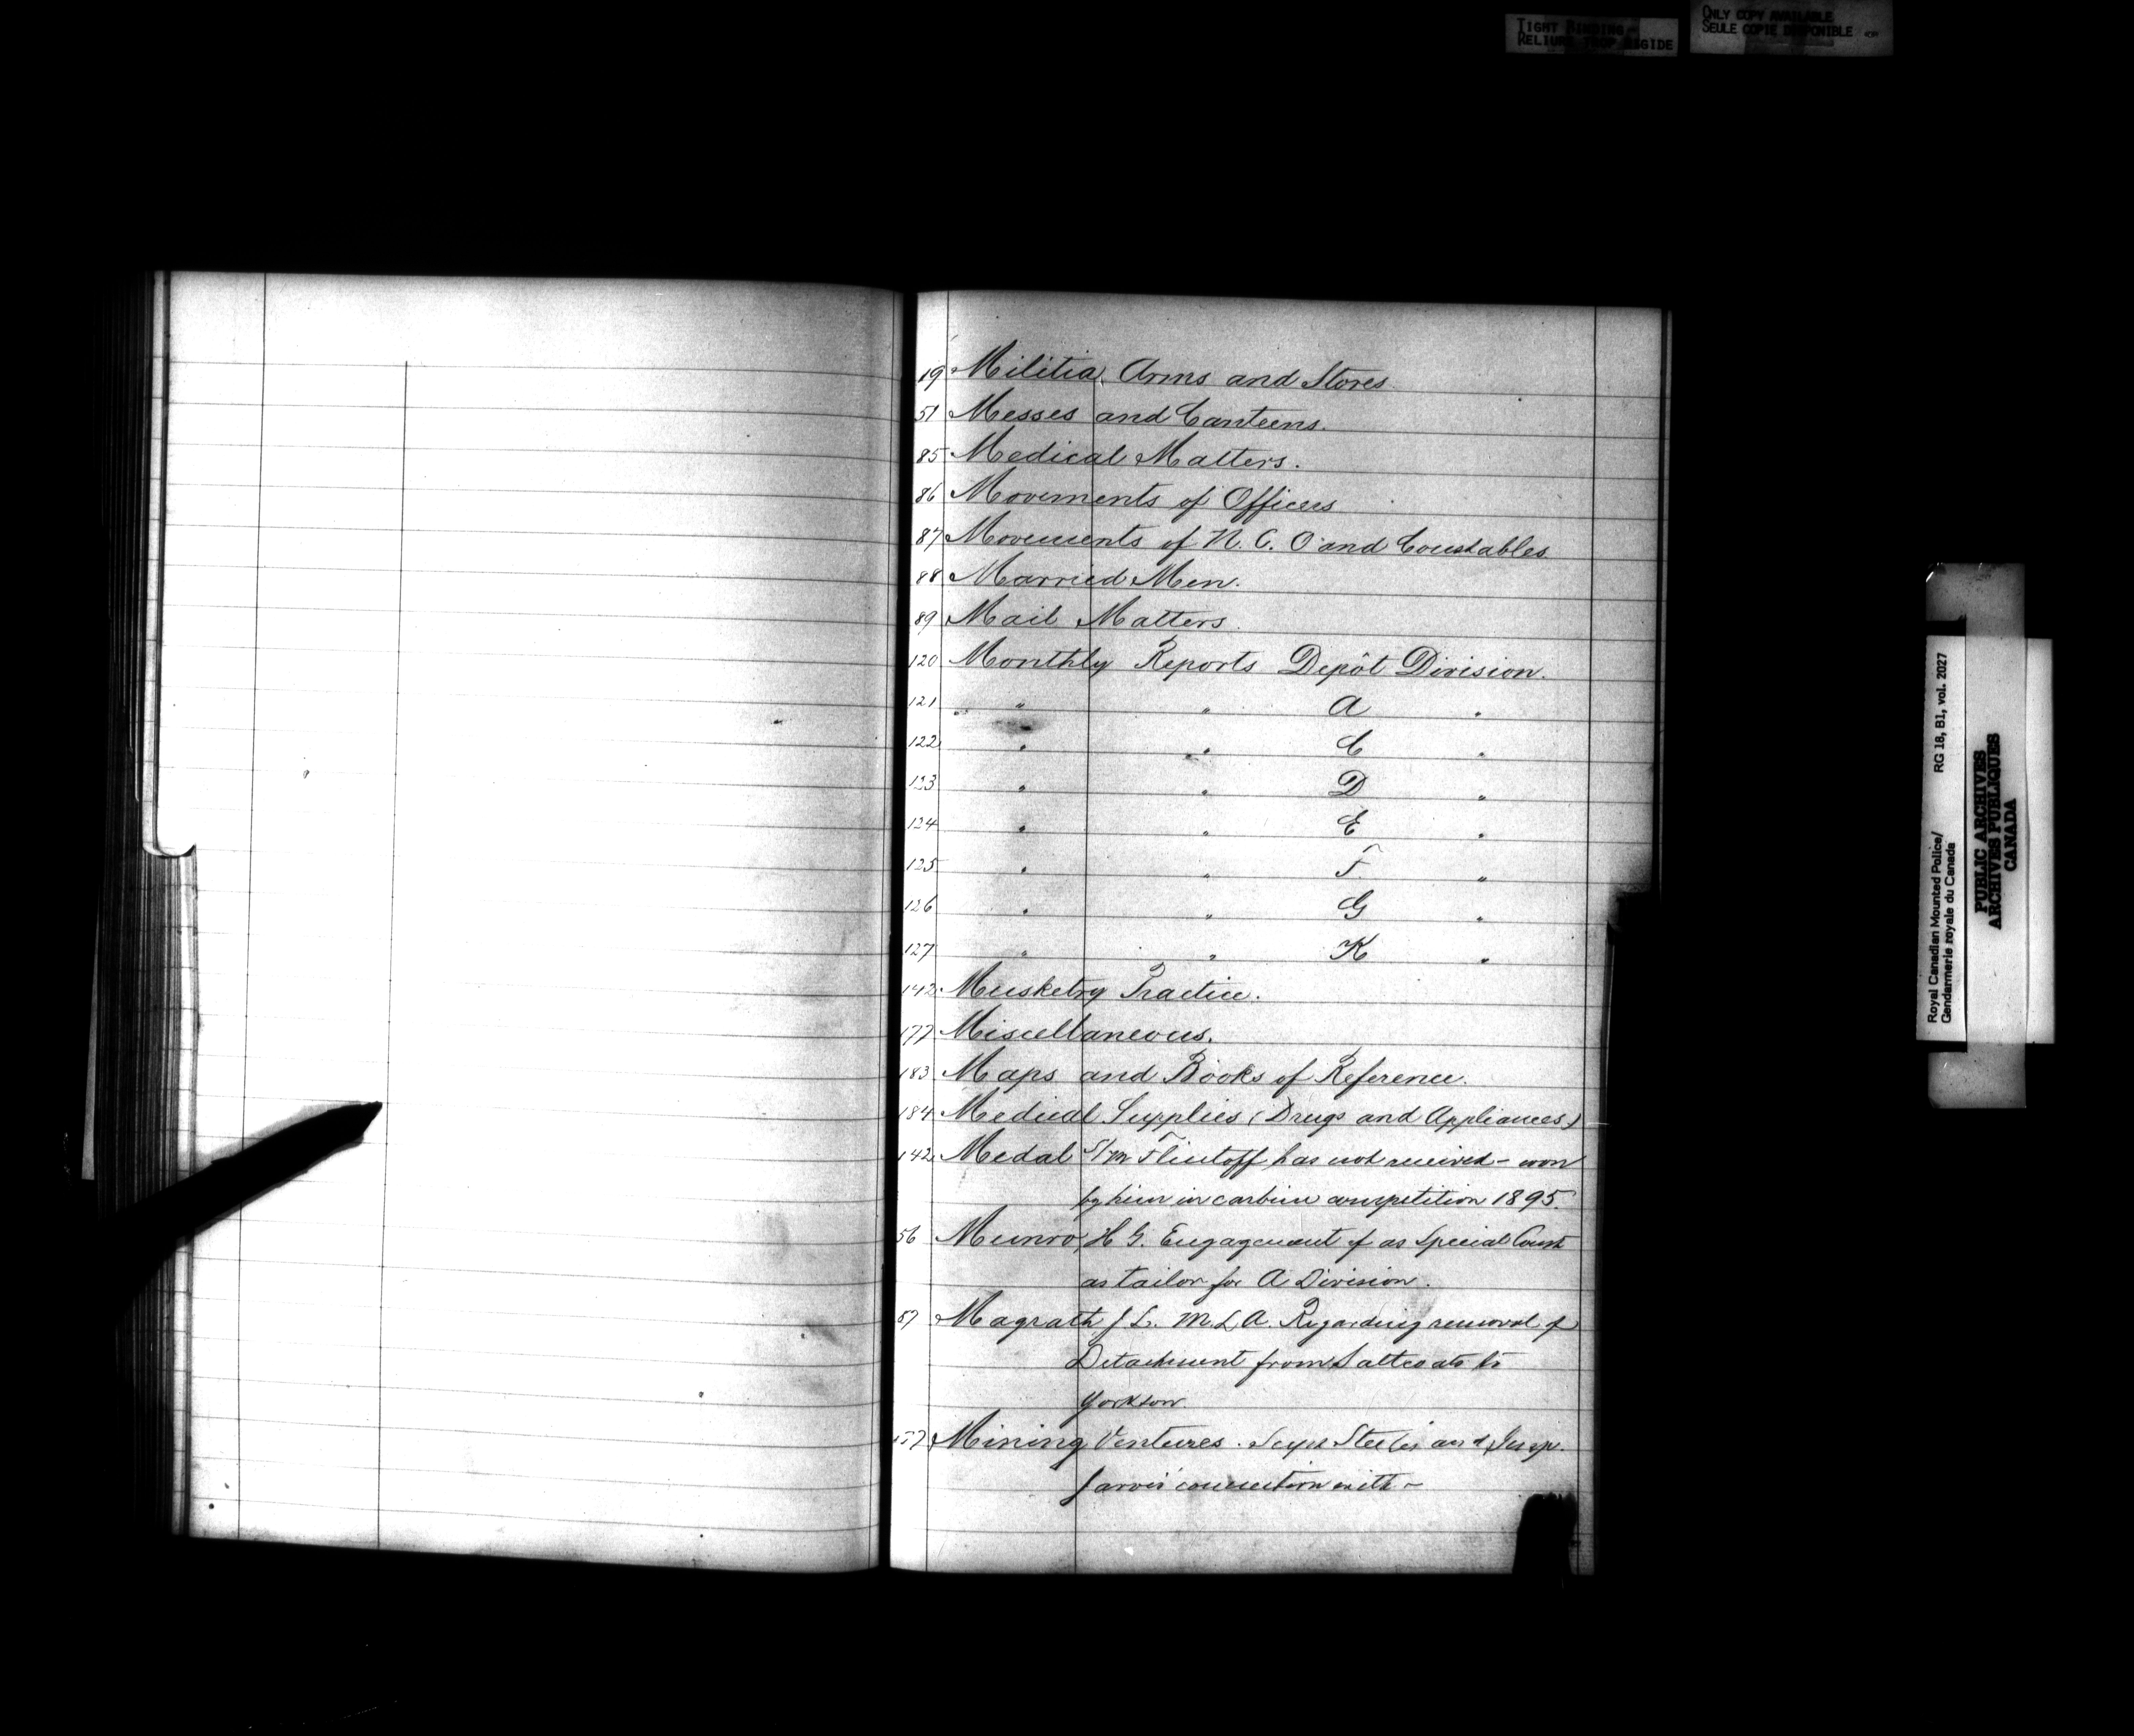 TIGHT BINDING
RELIURE TROP RIGIDE
ONLY COPY AVAILABLE
SEULE COPIE DISPONIBLE
19 Militia, Arms and Stores
51 Messes and Canteens.
85 Medical Matters.
86 Movements of Officers
87 Movements of N. C. O and Constables
88 Married Men.
89 Mail Matters.
120 Monthly Reports Depôt Division.
121 " " A "
122 " " C "
123 " " D "
124 " " E "
125 " " F "
126 " " G "
127 " " K "
142 Musketry Practice.
177 Miscellaneous.
183 Maps and Books of Reference.
184 Medical Supplies (Drugs and Appliances)
142 Medal S/M Flintoff has not received - won
by him in carbine competition 1895.
56 Munro, H G. Engagement of as Special Const
as tailor for A Division.
57 Magrath J L. M.L.A. Regarding removal of
Detachment from Saltcoats to
Yorkton
157 Mining Ventures. Supt Steele's and Insp.
Jarvis' connection with -
Royal Canadian Mounted Police/
Gendarmerie royale du Canada
RG 18, B1, vol. 2027
PUBLIC ARCHIVES
ARCHIVES PUBLIQUES
CANADA